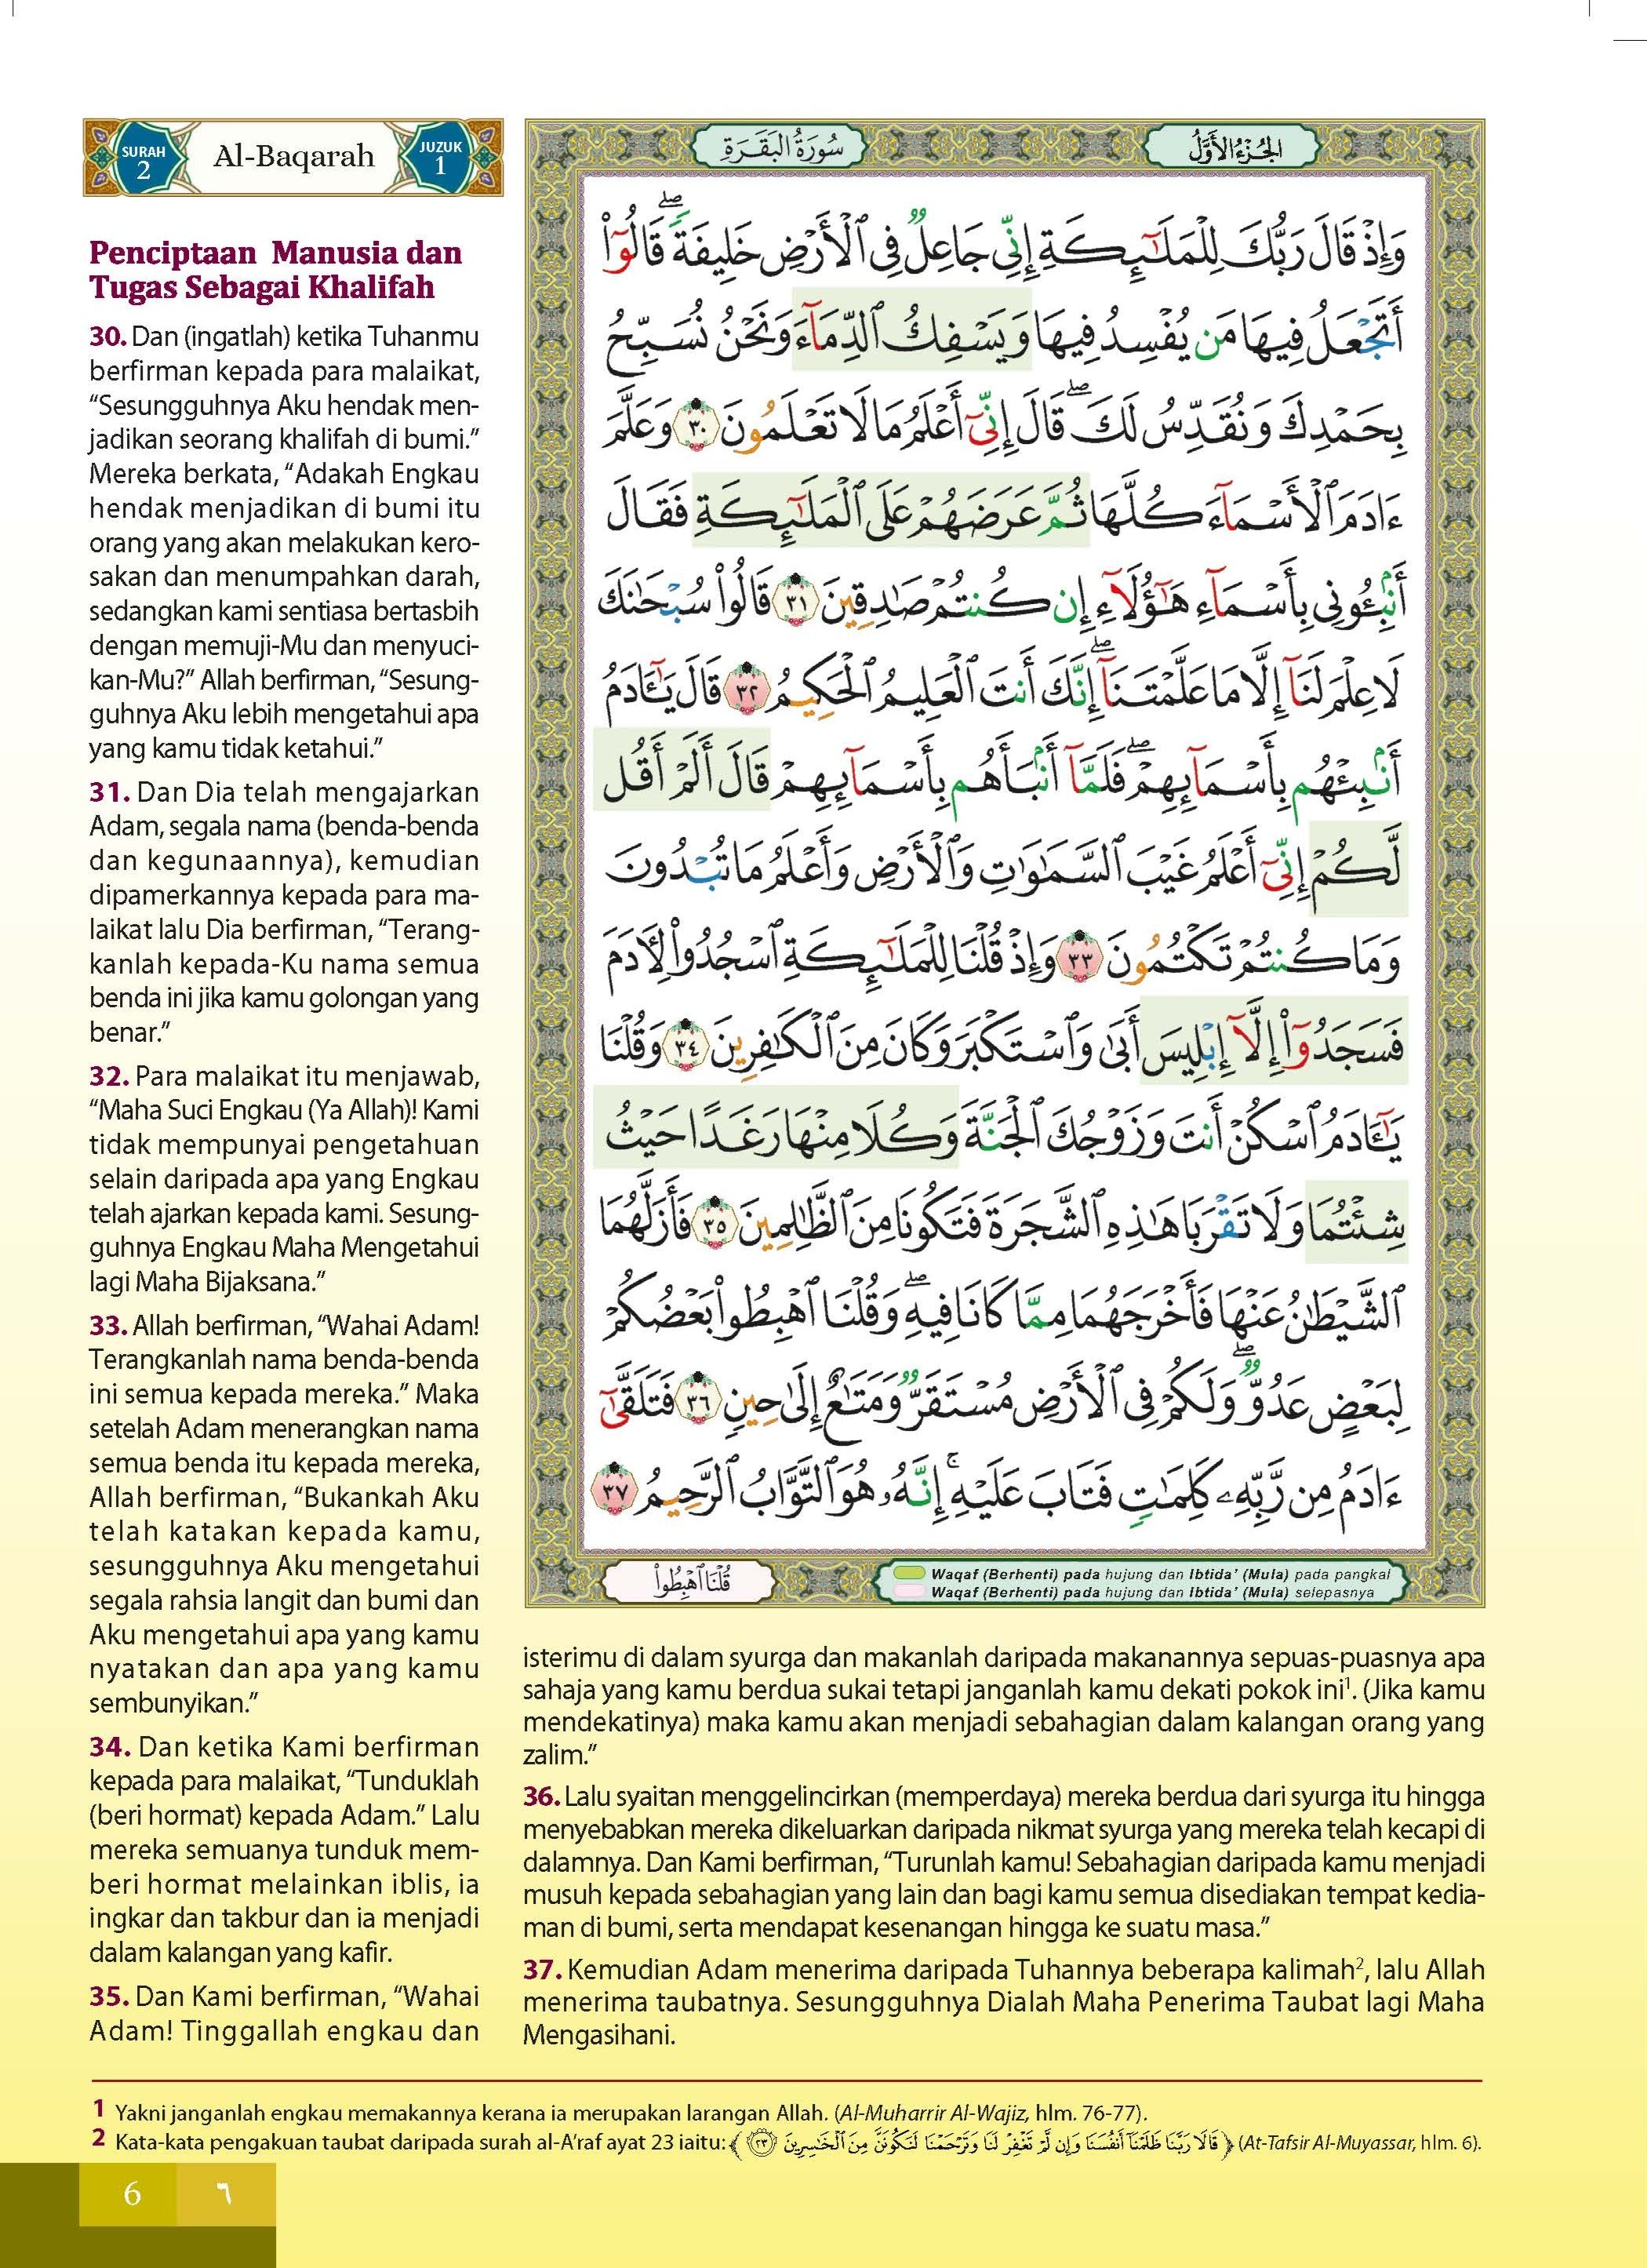 SURAH
2
Al-Baqarah
JUZUK
1
سُورَةُ الْبَقَرَةِ
الجُزْءُ الأَوَّلُ
Penciptaan Manusia dan
Tugas Sebagai Khalifah
30. Dan (ingatlah) ketika Tuhanmu
berfirman kepada para malaikat,
“Sesungguhnya Aku hendak men-
jadikan seorang khalifah di bumi.”
Mereka berkata, “Adakah Engkau
hendak menjadikan di bumi itu
orang yang akan melakukan kero-
sakan dan menumpahkan darah,
sedangkan kami sentiasa bertasbih
dengan memuji-Mu dan menyuci-
kan-Mu?” Allah berfirman, “Sesung-
guhnya Aku lebih mengetahui apa
yang kamu tidak ketahui.”
31. Dan Dia telah mengajarkan
Adam, segala nama (benda-benda
dan kegunaannya), kemudian
dipamerkannya kepada para ma-
laikat lalu Dia berfirman, “Terang-
kanlah kepada-Ku nama semua
benda ini jika kamu golongan yang
benar.”
32. Para malaikat itu menjawab,
“Maha Suci Engkau (Ya Allah)! Kami
tidak mempunyai pengetahuan
selain daripada apa yang Engkau
telah ajarkan kepada kami. Sesung-
guhnya Engkau Maha Mengetahui
lagi Maha Bijaksana.”
33. Allah berfirman, “Wahai Adam!
Terangkanlah nama benda-benda
ini semua kepada mereka.” Maka
setelah Adam menerangkan nama
semua benda itu kepada mereka,
Allah berfirman, “Bukankah Aku
telah katakan kepada kamu,
sesungguhnya Aku mengetahui
segala rahsia langit dan bumi dan
Aku mengetahui apa yang kamu
nyatakan dan apa yang kamu
sembunyikan.”
34. Dan ketika Kami berfirman
kepada para malaikat, “Tunduklah
(beri hormat) kepada Adam.” Lalu
mereka semuanya tunduk mem-
beri hormat melainkan iblis, ia
ingkar dan takbur dan ia menjadi
dalam kalangan yang kafir.
35. Dan Kami berfirman, “Wahai
Adam! Tinggallah engkau dan
وَإِذْ قَالَ رَبُّكَ لِلْمَلَٰٓئِكَةِ إِنِّى جَاعِلٌ فِى ٱلْأَرْضِ خَلِيفَةً ۖ قَالُوٓا۟
أَتَجْعَلُ فِيهَا مَن يُفْسِدُ فِيهَا وَيَسْفِكُ ٱلدِّمَآءَ وَنَحْنُ نُسَبِّحُ
بِحَمْدِكَ وَنُقَدِّسُ لَكَ ۖ قَالَ إِنِّىٓ أَعْلَمُ مَا لَا تَعْلَمُونَ ٣٠ وَعَلَّمَ
ءَادَمَ ٱلْأَسْمَآءَ كُلَّهَا ثُمَّ عَرَضَهُمْ عَلَى ٱلْمَلَٰٓئِكَةِ فَقَالَ
أَنۢبِـُٔونِى بِأَسْمَآءِ هَٰٓؤُلَآءِ إِن كُنتُمْ صَٰدِقِينَ ٣١ قَالُوا۟ سُبْحَٰنَكَ
لَا عِلْمَ لَنَآ إِلَّا مَا عَلَّمْتَنَآ ۖ إِنَّكَ أَنتَ ٱلْعَلِيمُ ٱلْحَكِيمُ ٣٢ قَالَ يَٰٓـَٔادَمُ
أَنۢبِئْهُم بِأَسْمَآئِهِمْ ۖ فَلَمَّآ أَنۢبَأَهُم بِأَسْمَآئِهِمْ قَالَ أَلَمْ أَقُل
لَّكُمْ إِنِّىٓ أَعْلَمُ غَيْبَ ٱلسَّمَٰوَٰتِ وَٱلْأَرْضِ وَأَعْلَمُ مَا تُبْدُونَ
وَمَا كُنتُمْ تَكْتُمُونَ ٣٣ وَإِذْ قُلْنَا لِلْمَلَٰٓئِكَةِ ٱسْجُدُوا۟ لِـَٔادَمَ
فَسَجَدُوٓا۟ إِلَّآ إِبْلِيسَ أَبَىٰ وَٱسْتَكْبَرَ وَكَانَ مِنَ ٱلْكَٰفِرِينَ ٣٤ وَقُلْنَا
يَٰٓـَٔادَمُ ٱسْكُنْ أَنتَ وَزَوْجُكَ ٱلْجَنَّةَ وَكُلَا مِنْهَا رَغَدًا حَيْثُ
شِئْتُمَا وَلَا تَقْرَبَا هَٰذِهِ ٱلشَّجَرَةَ فَتَكُونَا مِنَ ٱلظَّٰلِمِينَ ٣٥ فَأَزَلَّهُمَا
ٱلشَّيْطَٰنُ عَنْهَا فَأَخْرَجَهُمَا مِمَّا كَانَا فِيهِ ۖ وَقُلْنَا ٱهْبِطُوا۟ بَعْضُكُمْ
لِبَعْضٍ عَدُوٌّ ۖ وَلَكُمْ فِى ٱلْأَرْضِ مُسْتَقَرٌّ وَمَتَٰعٌ إِلَىٰ حِينٍ ٣٦ فَتَلَقَّىٰٓ
ءَادَمُ مِن رَّبِّهِۦ كَلِمَٰتٍ فَتَابَ عَلَيْهِ ۚ إِنَّهُۥ هُوَ ٱلتَّوَّابُ ٱلرَّحِيمُ ٣٧
قُلْنَا ٱهْبِطُوا۟
Waqaf (Berhenti) pada hujung dan Ibtida’ (Mula) pada pangkal
Waqaf (Berhenti) pada hujung dan Ibtida’ (Mula) selepasnya
isterimu di dalam syurga dan makanlah daripada makanannya sepuas-puasnya apa
sahaja yang kamu berdua sukai tetapi janganlah kamu dekati pokok ini¹. (Jika kamu
mendekatinya) maka kamu akan menjadi sebahagian dalam kalangan orang yang
zalim.”
36. Lalu syaitan menggelincirkan (memperdaya) mereka berdua dari syurga itu hingga
menyebabkan mereka dikeluarkan daripada nikmat syurga yang mereka telah kecapi di
dalamnya. Dan Kami berfirman, “Turunlah kamu! Sebahagian daripada kamu menjadi
musuh kepada sebahagian yang lain dan bagi kamu semua disediakan tempat kedia-
man di bumi, serta mendapat kesenangan hingga ke suatu masa.”
37. Kemudian Adam menerima daripada Tuhannya beberapa kalimah², lalu Allah
menerima taubatnya. Sesungguhnya Dialah Maha Penerima Taubat lagi Maha
Mengasihani.
1 Yakni janganlah engkau memakannya kerana ia merupakan larangan Allah. (Al-Muharrir Al-Wajiz, hlm. 76-77).
2 Kata-kata pengakuan taubat daripada surah al-A’raf ayat 23 iaitu: ﴿ قَالَا رَبَّنَا ظَلَمْنَآ أَنفُسَنَا وَإِن لَّمْ تَغْفِرْ لَنَا وَتَرْحَمْنَا لَنَكُونَنَّ مِنَ ٱلْخَٰسِرِينَ ٢٣ ﴾ (At-Tafsir Al-Muyassar, hlm. 6).
6 ٦